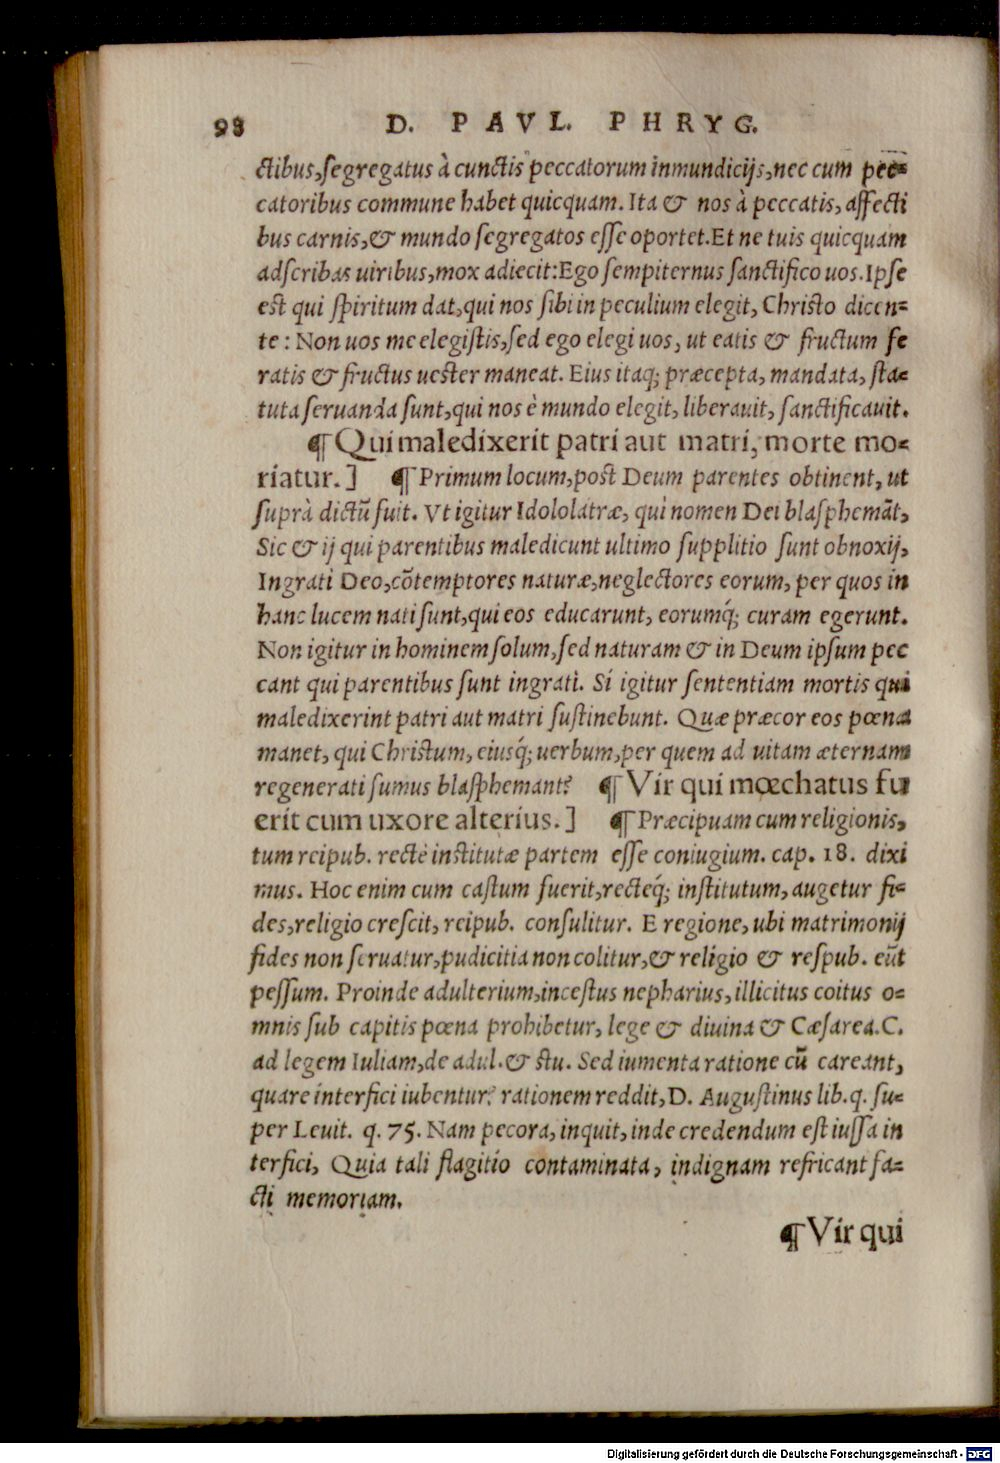 98 D. PAVL. PHRYG.
ctibus,segregatus à cunctis peccatorum inmundicijs,nec cum pec-
catoribus commune habet quicquam. Ita & nos à peccatis, affecti
bus carnis,& mundo segregatos esse oportet. Et ne tuis quicquam
adscribas uiribus,mox adiecit:Ego sempiternus sanctifico uos. Ipse
est qui spiritum dat,qui nos sibi in peculium elegit, Christo dicen-
te : Non uos me elegistis,sed ego elegi uos, ut eatis & fructum fe
ratis & fructus uester maneat. Eius itaq; præcepta, mandata, sta-
tuta seruanda sunt,qui nos è mundo elegit, liberauit, sanctificauit.
¶ Qui maledixerit patri aut matri, morte mo-
riatur.] ¶ Primum locum,post Deum parentes obtinent, ut
suprà dictũ fuit. Vt igitur Idololatræ, qui nomen Dei blasphemãt,
Sic & ij qui parentibus maledicunt ultimo supplitio sunt obnoxij,
Ingrati Deo,cõtemptores naturæ,neglectores eorum, per quos in
hanc lucem nati sunt,qui eos educarunt, eorumq́; curam egerunt.
Non igitur in hominem solum,sed naturam & in Deum ipsum pec
cant qui parentibus sunt ingrati. Si igitur sententiam mortis qui
maledixerint patri aut matri sustinebunt. Quæ præcor eos pœna
manet, qui Christum, eiusq́; uerbum,per quem ad uitam æternam
regenerati sumus blasphemant? ¶ Vir qui mœchatus fu
erit cum uxore alterius.] ¶ Præcipuam cum religionis,
tum reipub. rectè institutæ partem esse coniugium. cap. 18. dixi
mus. Hoc enim cum castum fuerit,recteq́; institutum, augetur fi-
des,religio crescit, reipub. consulitur. E regione, ubi matrimonij
fides non seruatur,pudicitia non colitur,& religio & respub. eũt
pessum. Proinde adulterium,incestus nepharius, illicitus coitus o-
mnis sub capitis pœna prohibetur, lege & diuina & Cæsarea. C.
ad legem Iuliam,de adul. & stu. Sed iumenta ratione cũ careant,
quare interfici iubentur? rationem reddit, D. Augustinus lib. q. su-
per Leuit. q. 75. Nam pecora, inquit, inde credendum est iussa in
terfici, Quia tali flagitio contaminata, indignam refricant fa-
cti memoriam.
¶ Vir qui
Digitalisierung gefördert durch die Deutsche Forschungsgemeinschaft - DFG